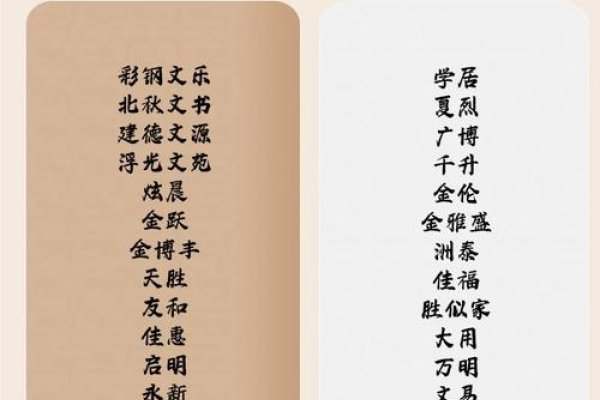 彩钢文乐
北秋文书
建德文源
浮光文苑
炫晨
金跃
金博丰
天胜
友和
佳惠
启明
永新
学居
夏烈
广博
千升
金伦
金雅盛
洲泰
佳福
胜似家
大用
万明
文易